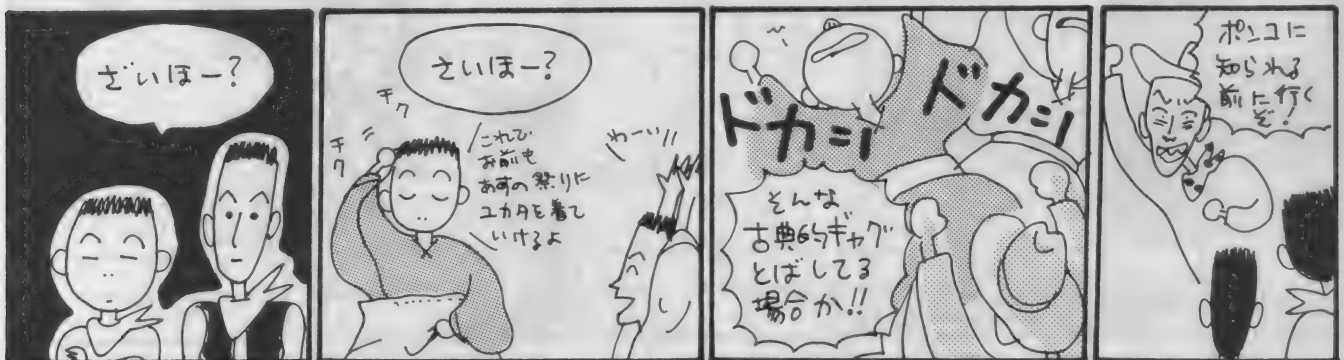 ざいほー?
さいほー?
チク
チク
これで
お前も
あすの祭りに
ユカタを着て
いけるよ
わーい!!
ドカーン
ドカーン
そんな
古典的ギャグ
とばしてる
場合か!!
ポンコに
知られる
前に行く
ぞ!